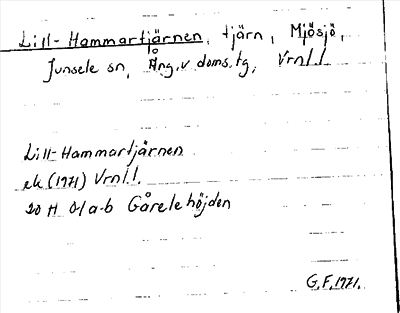 Lill-Hammartjärnen, tjärn, Mjösjö,
Junsele sn, Ång.v doms.tg, Vrnl.l
Lill-Hammartjärnen
ek (1971) Vrnl.l.
20 H 0/a-b Gårelehöjden
G.F. 1971.